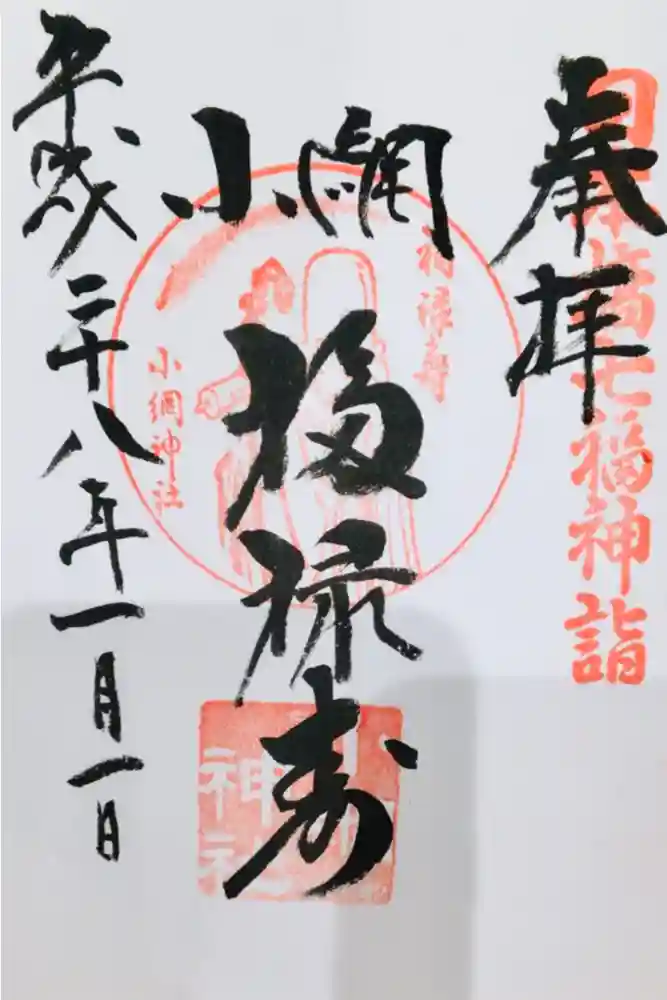 日本橋七福神詣
奉拝
福禄寿
小網
福禄寿
小網神社
小網神社
平成二十八年一月一日